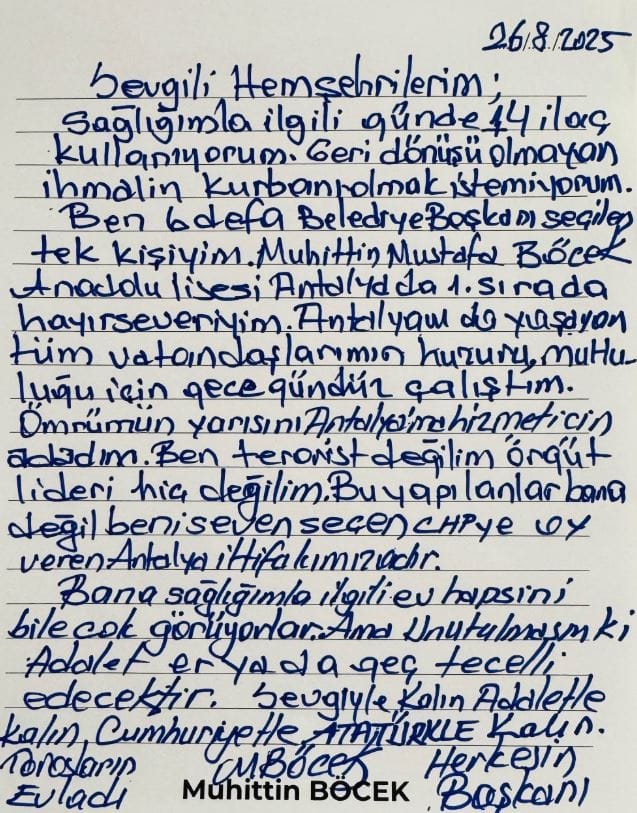 26.8.2025
Sevgili Hemşehrilerim;
Sağlığımla ilgili günde 14 ilaç
kullanıyorum. Geri dönüşü olmayan
ihmalin kurbanı olmak istemiyorum.
Ben 6 defa Belediye Başkanı seçilen
tek kişiyim. Muhittin Mustafa Böcek
Anadolu lisesi Antalya'da 1. sırada
hayırseveriyim. Antalyam da yaşayan
tüm vatandaşlarımın huzuru, mutlu-
luğu için gece gündüz çalıştım.
Ömrümün yarısını Antalya'ma hizmet için
adadım. Ben terorist değilim örgüt
lideri hiç değilim. Bu yapılanlar bana
değil beni seven seçen CHP'ye oy
veren Antalya ittifakımızadır.
Bana sağlığımla ilgili ev hapsini
bile çok görüyorlar. Ama Unutulmasın ki
Adalet er ya da geç tecelli
edecektir. Sevgiyle, Kalın Adaletle
kalın, Cumhuriyetle, ATATÜRKLE Kalın.
Torosların MBÖCEK Herkesin
Evladı Muhittin BÖCEK Başkanı